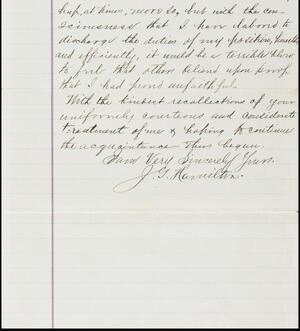 but, at times, more so, but with the con-
sciousness that I have labored to
discharge the duties of my position, honestly
and efficiently, it would be a terrible blow
to feel that others believed upon proof
that I had proved unfaithful.
With the kindest recollections of your
uniformly courteous and considerate
treatment of me & hoping to continue
the acquaintance thus begun.
I am Very Sincerely Yours.
J. G. Hamilton.